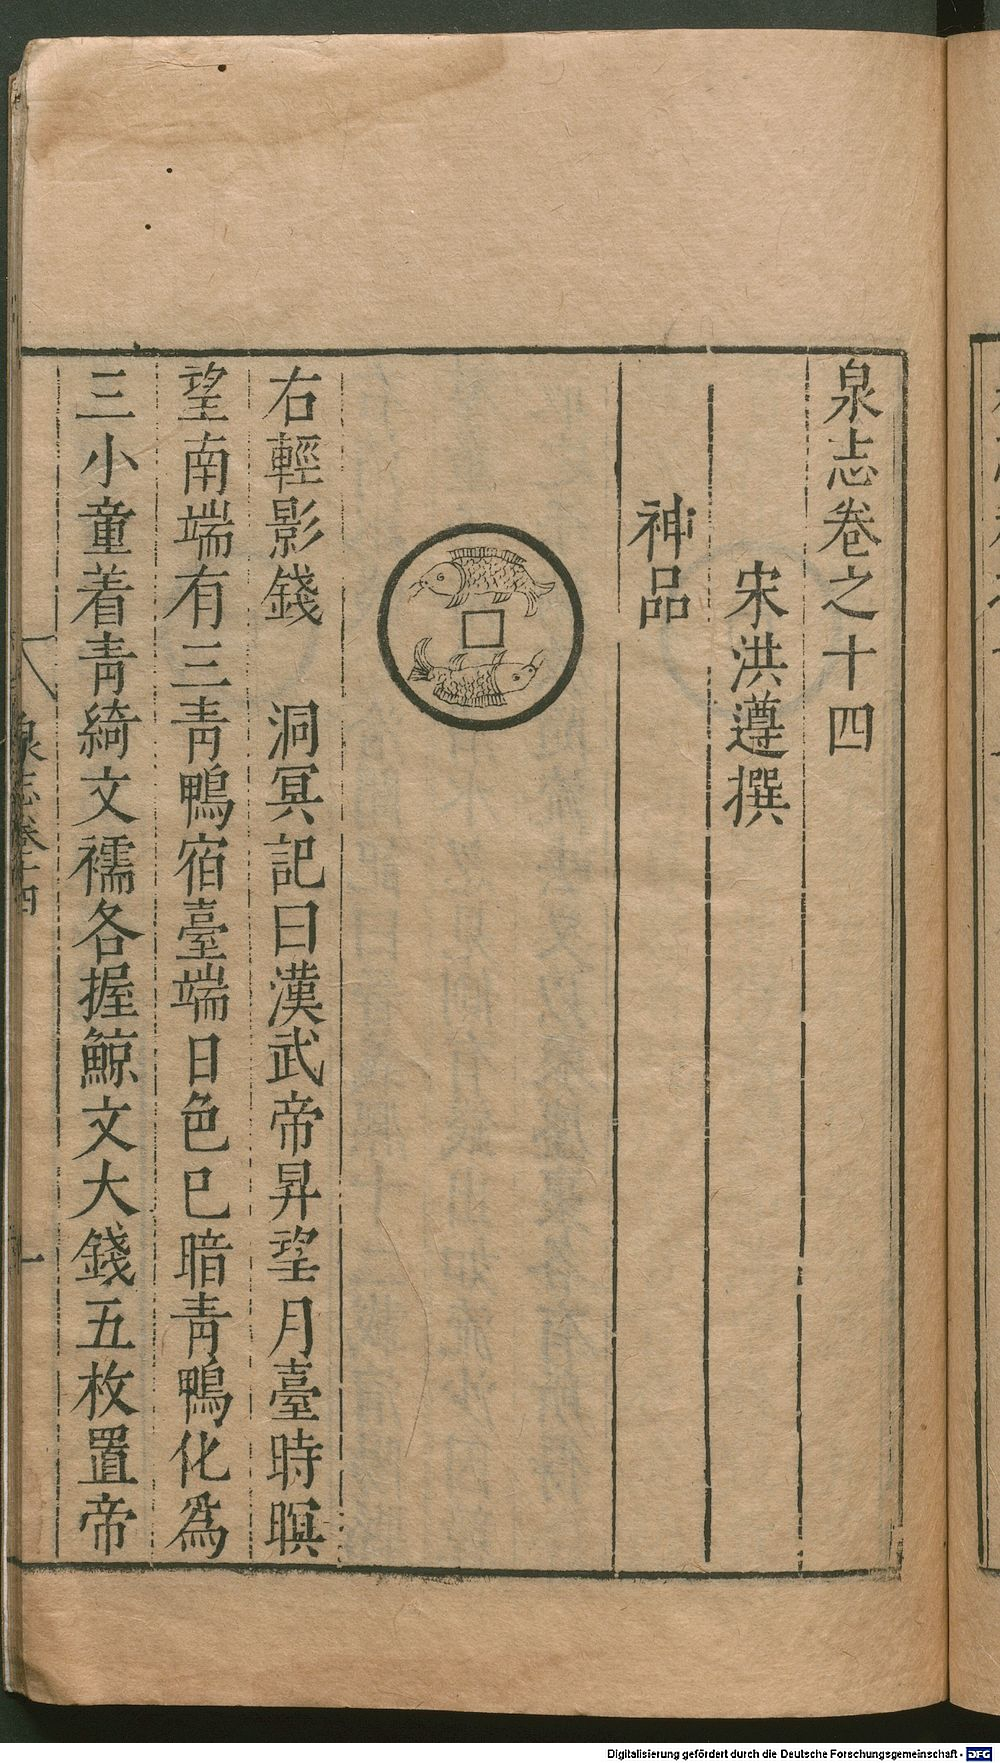 泉志卷之十四
宋洪遵撰
神品
右輕影錢　洞冥記曰漢武帝昇望月臺時暝
望南端有三青鴨宿臺端日色已暗青鴨化爲
三小童着青綺文襦各握鯨文大錢五枚置帝
泉志卷十四
一
Digitalisierung gefördert durch die Deutsche Forschungsgemeinschaft - DFG